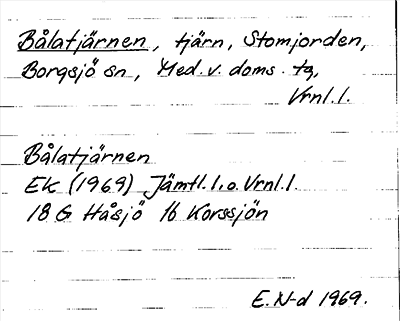 Bålatjärnen, tjärn, Stomjorden,
Borgsjö sn, Med. v. doms. tg,
Vrnl. l.
Bålatjärnen
EK (1969) Jämtl. l. o. Vrnl. l.
18 G Håsjö 1b Korssjön
E. N-d 1969.